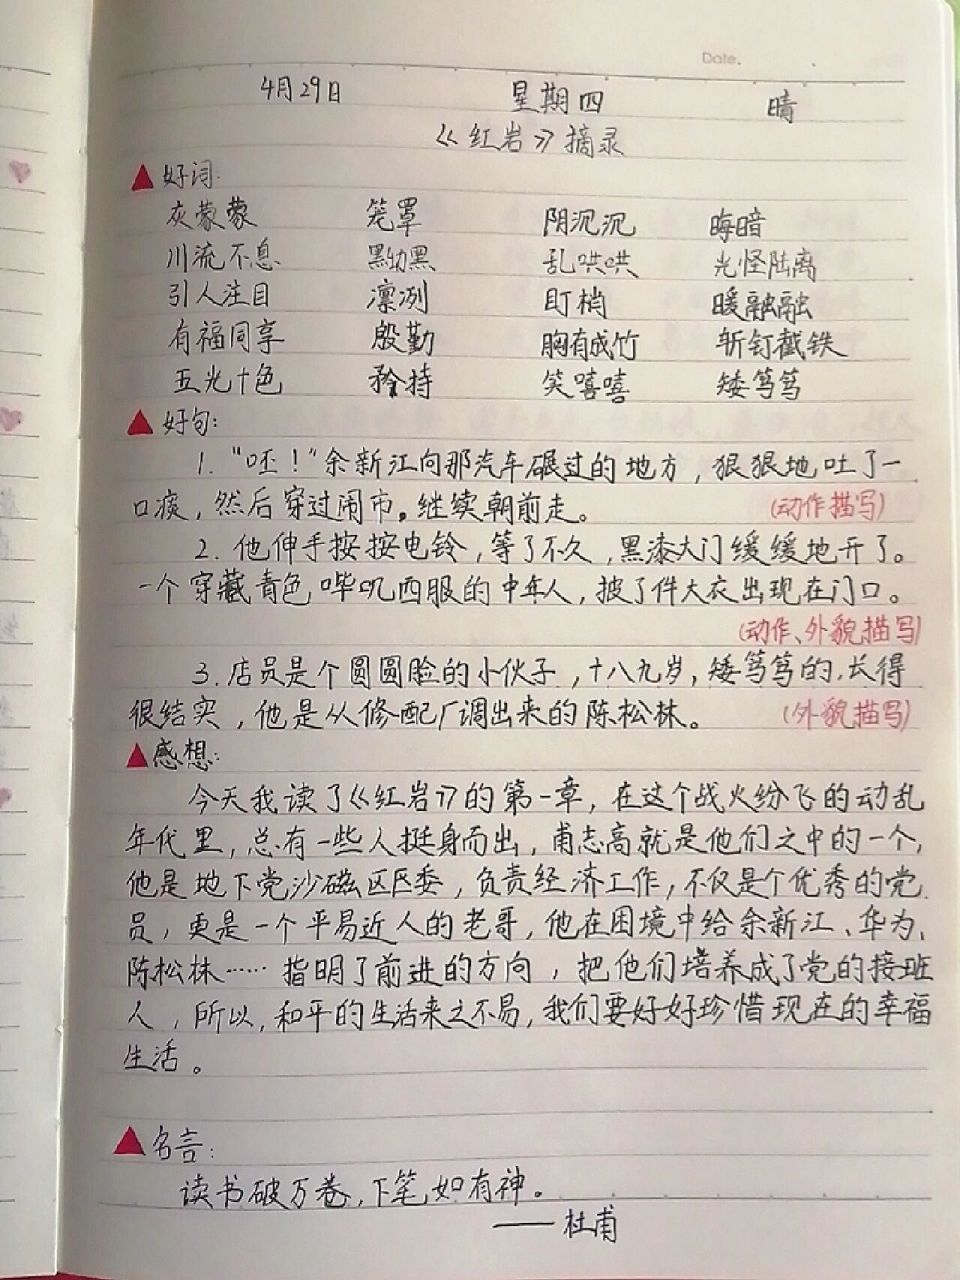 Date.
4月29日 星期四 晴
《红岩》摘录
▲好词:
灰蒙蒙 笼罩 阴沉沉 晦暗
川流不息 黑黝黑 乱哄哄 光怪陆离
引人注目 凛冽 盯梢 暖融融
有福同享 殷勤 胸有成竹 斩钉截铁
五光十色 矜持 笑嘻嘻 矮笃笃
▲好句:
1."呸!"余新江向那汽车碾过的地方,狠狠地吐了一
口痰,然后穿过闹市。继续朝前走。 (动作描写)
2.他伸手按按电铃,等了不久,黑漆大门缓缓地开了。
一个穿藏青色哔叽西服的中年人,披了件大衣出现在门口。
(动作、外貌描写)
3.店员是个圆圆脸的小伙子,十八九岁,矮笃笃的,长得
很结实,他是从修配厂调出来的陈松林。 (外貌描写)
▲感想:
今天我读了《红岩》的第一章,在这个战火纷飞的动乱
年代里,总有一些人挺身而出,甫志高就是他们之中的一个,
他是地下党沙磁区区委,负责经济工作,不仅是个优秀的党
员,更是一个平易近人的老哥,他在困境中给余新江、华为、
陈松林……指明了前进的方向,把他们培养成了党的接班
人,所以,和平的生活来之不易,我们要好好珍惜现在的幸福
生活。
▲名言:
读书破万卷,下笔如有神。
——杜甫